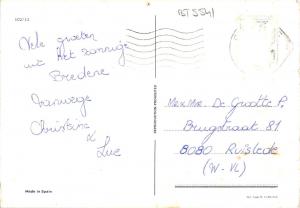 BST 5541
Vele groeten
uit het zonnige
Bredene
Vanwege
Christine
&
Luc
Made in Spain
REPRODUCTION PROHIBITED
Mr & Mw. De Grootte P.
Brugstraat 81
8080 Ruislede
(W-VL)